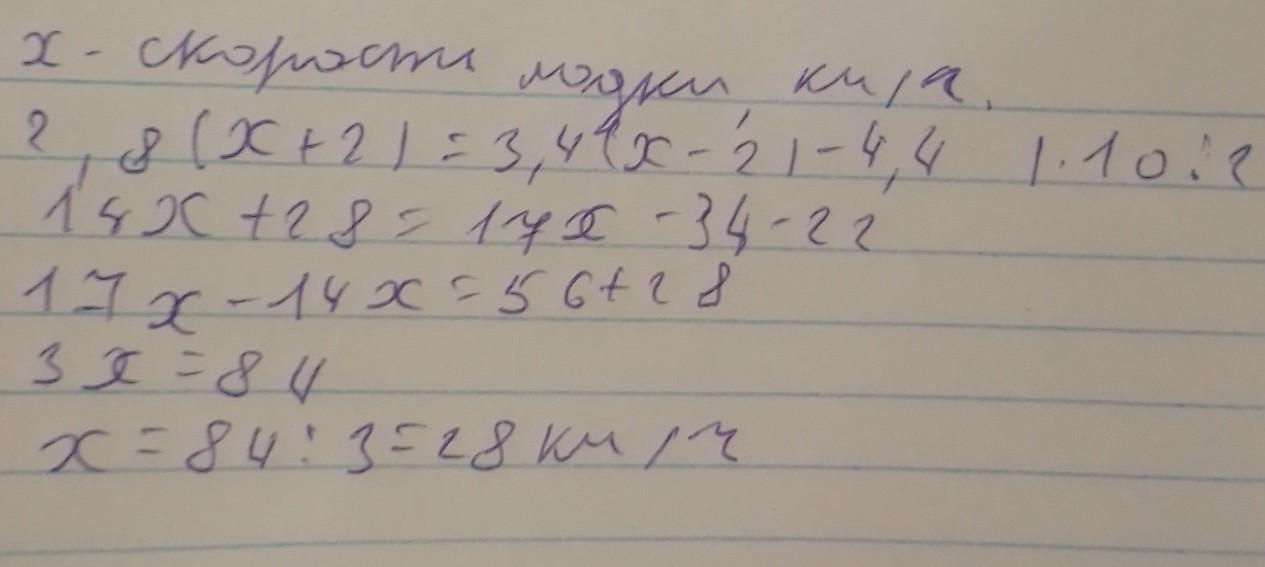 x - скорости лодки км/ч.
2,8(x+2)=3,4(x-2)-4,4 |·10:2
14x+28=17x-34-22
17x-14x=56+28
3x=84
x=84:3=28км/ч